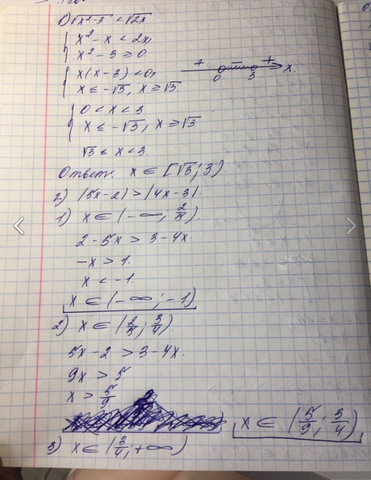 1) √x²-3 < √2x
x² - x < 2x
x² - 3 ≥ 0
x(x-3) < 0,
x ≤ -√3, x ≥ √3
+ - + x
0 3
0 < x < 3
x ≤ -√3, x ≥ √3
√3 ≤ x < 3
Ответ: x ∈ [√3; 3)
2) |5x-2| > |4x-3|
1) x ∈ (-∞; 2/5)
2-5x > 3-4x
-x > 1.
x < -1
x ∈ (-∞; -1)
2) x ∈ (2/5; 3/4)
5x-2 > 3-4x.
9x > 5
x > 5/9
x ∈ (5/9; 3/4)
3) x ∈ (3/4; +∞)